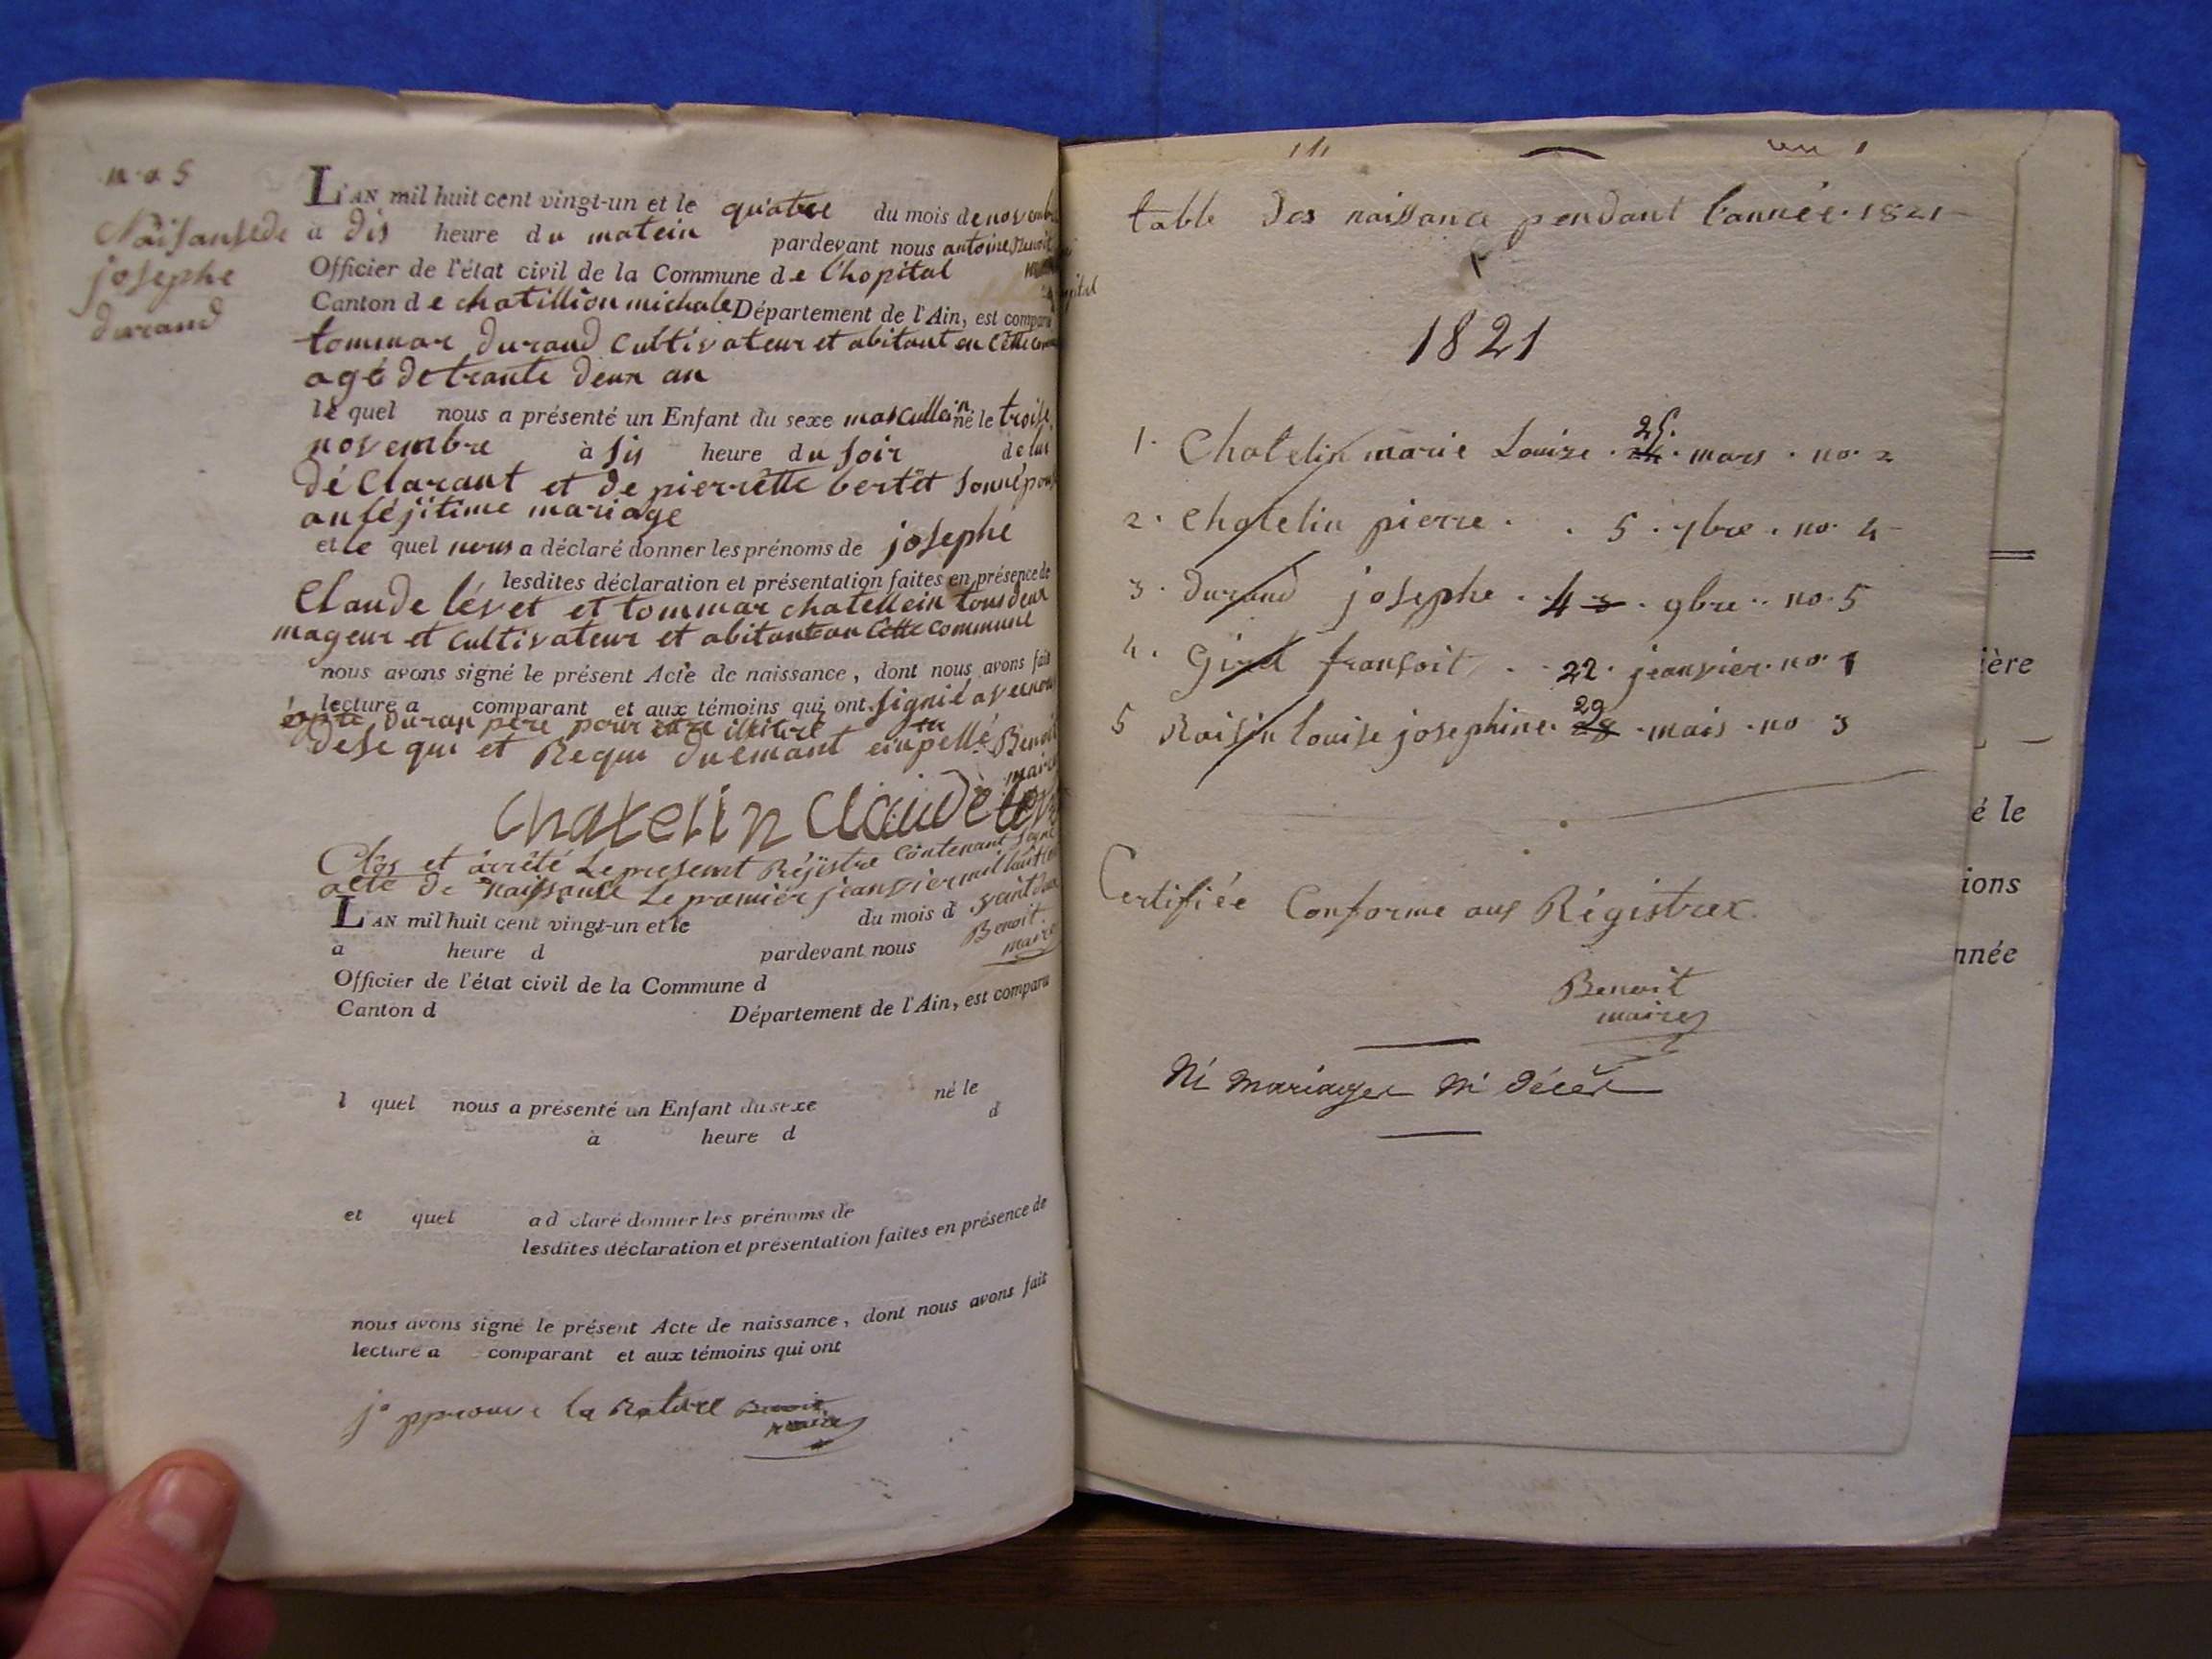 n.o 5
Naisansede
josephe
durand
L'AN mil huit cent vingt-un et le quatre du mois de novembre
à dis heure du matein pardevant nous antoine Benoit
Officier de l'état civil de la Commune de l'hopital
Canton de chatillion michale Département de l'Ain, est comparu
tommar durand cultivateur et abitant en cette
agé de trante deux an
le quel nous a présenté un Enfant du sexe masculein né le trois
novembre à sis heure du soir de lui
déclarant et de pierrette bertet son népouse
an léjitime mariage
et le quel nous a déclaré donner les prénoms de josephe
lesdites déclaration et présentation faites en présence de
Claude lévet et tommar chatellein tous deux
mageur et cultivateur et abitant an cette commune
nous avons signé le présent Acte de naissance, dont nous avons fait
lecture a comparant et aux témoins qui ont signié avec nous
duran père pour être illitiré
dese qui et Requi duemant einpellé Benoit
maire
chatelin Claude levet
Clos et àrrêté Le presemt Réjistre contenant
acte de naissance Le premier jeanvier mil huit cent
vaint deux
L'AN mil huit cent vingt-un et le du mois d
Benoit
maire
à heure d pardevant nous
Officier de l'état civil de la Commune d
Canton d Département de l'Ain, est comparu
l quel nous a présenté un Enfant du sexe né le
à heure d d
et quel a d claré donner les prénoms de
lesdites déclaration et présentation faites en présence de
nous avons signé le présent Acte de naissance, dont nous avons fait
lecture a comparant et aux témoins qui ont
j'approuve la Rature Benoit
maire
table des naissance pendant l'année 1821
1821
1. Chatelin marie Louise . 25. mars . no. 2
2. Chatelin pierre . . 5 . 7bre . no. 4
3. durand josephe . 4 3 . 9bre . no. 5
4. Girel françoit . . 22. jeanvier. no. 1
5 Raisin louise josephine. 29 28 . mais . no 3
Certifiée Conforme aux Régistrex.
Benoit
maire
Ni mariages Ni décès
ière
é le
ions
nnée